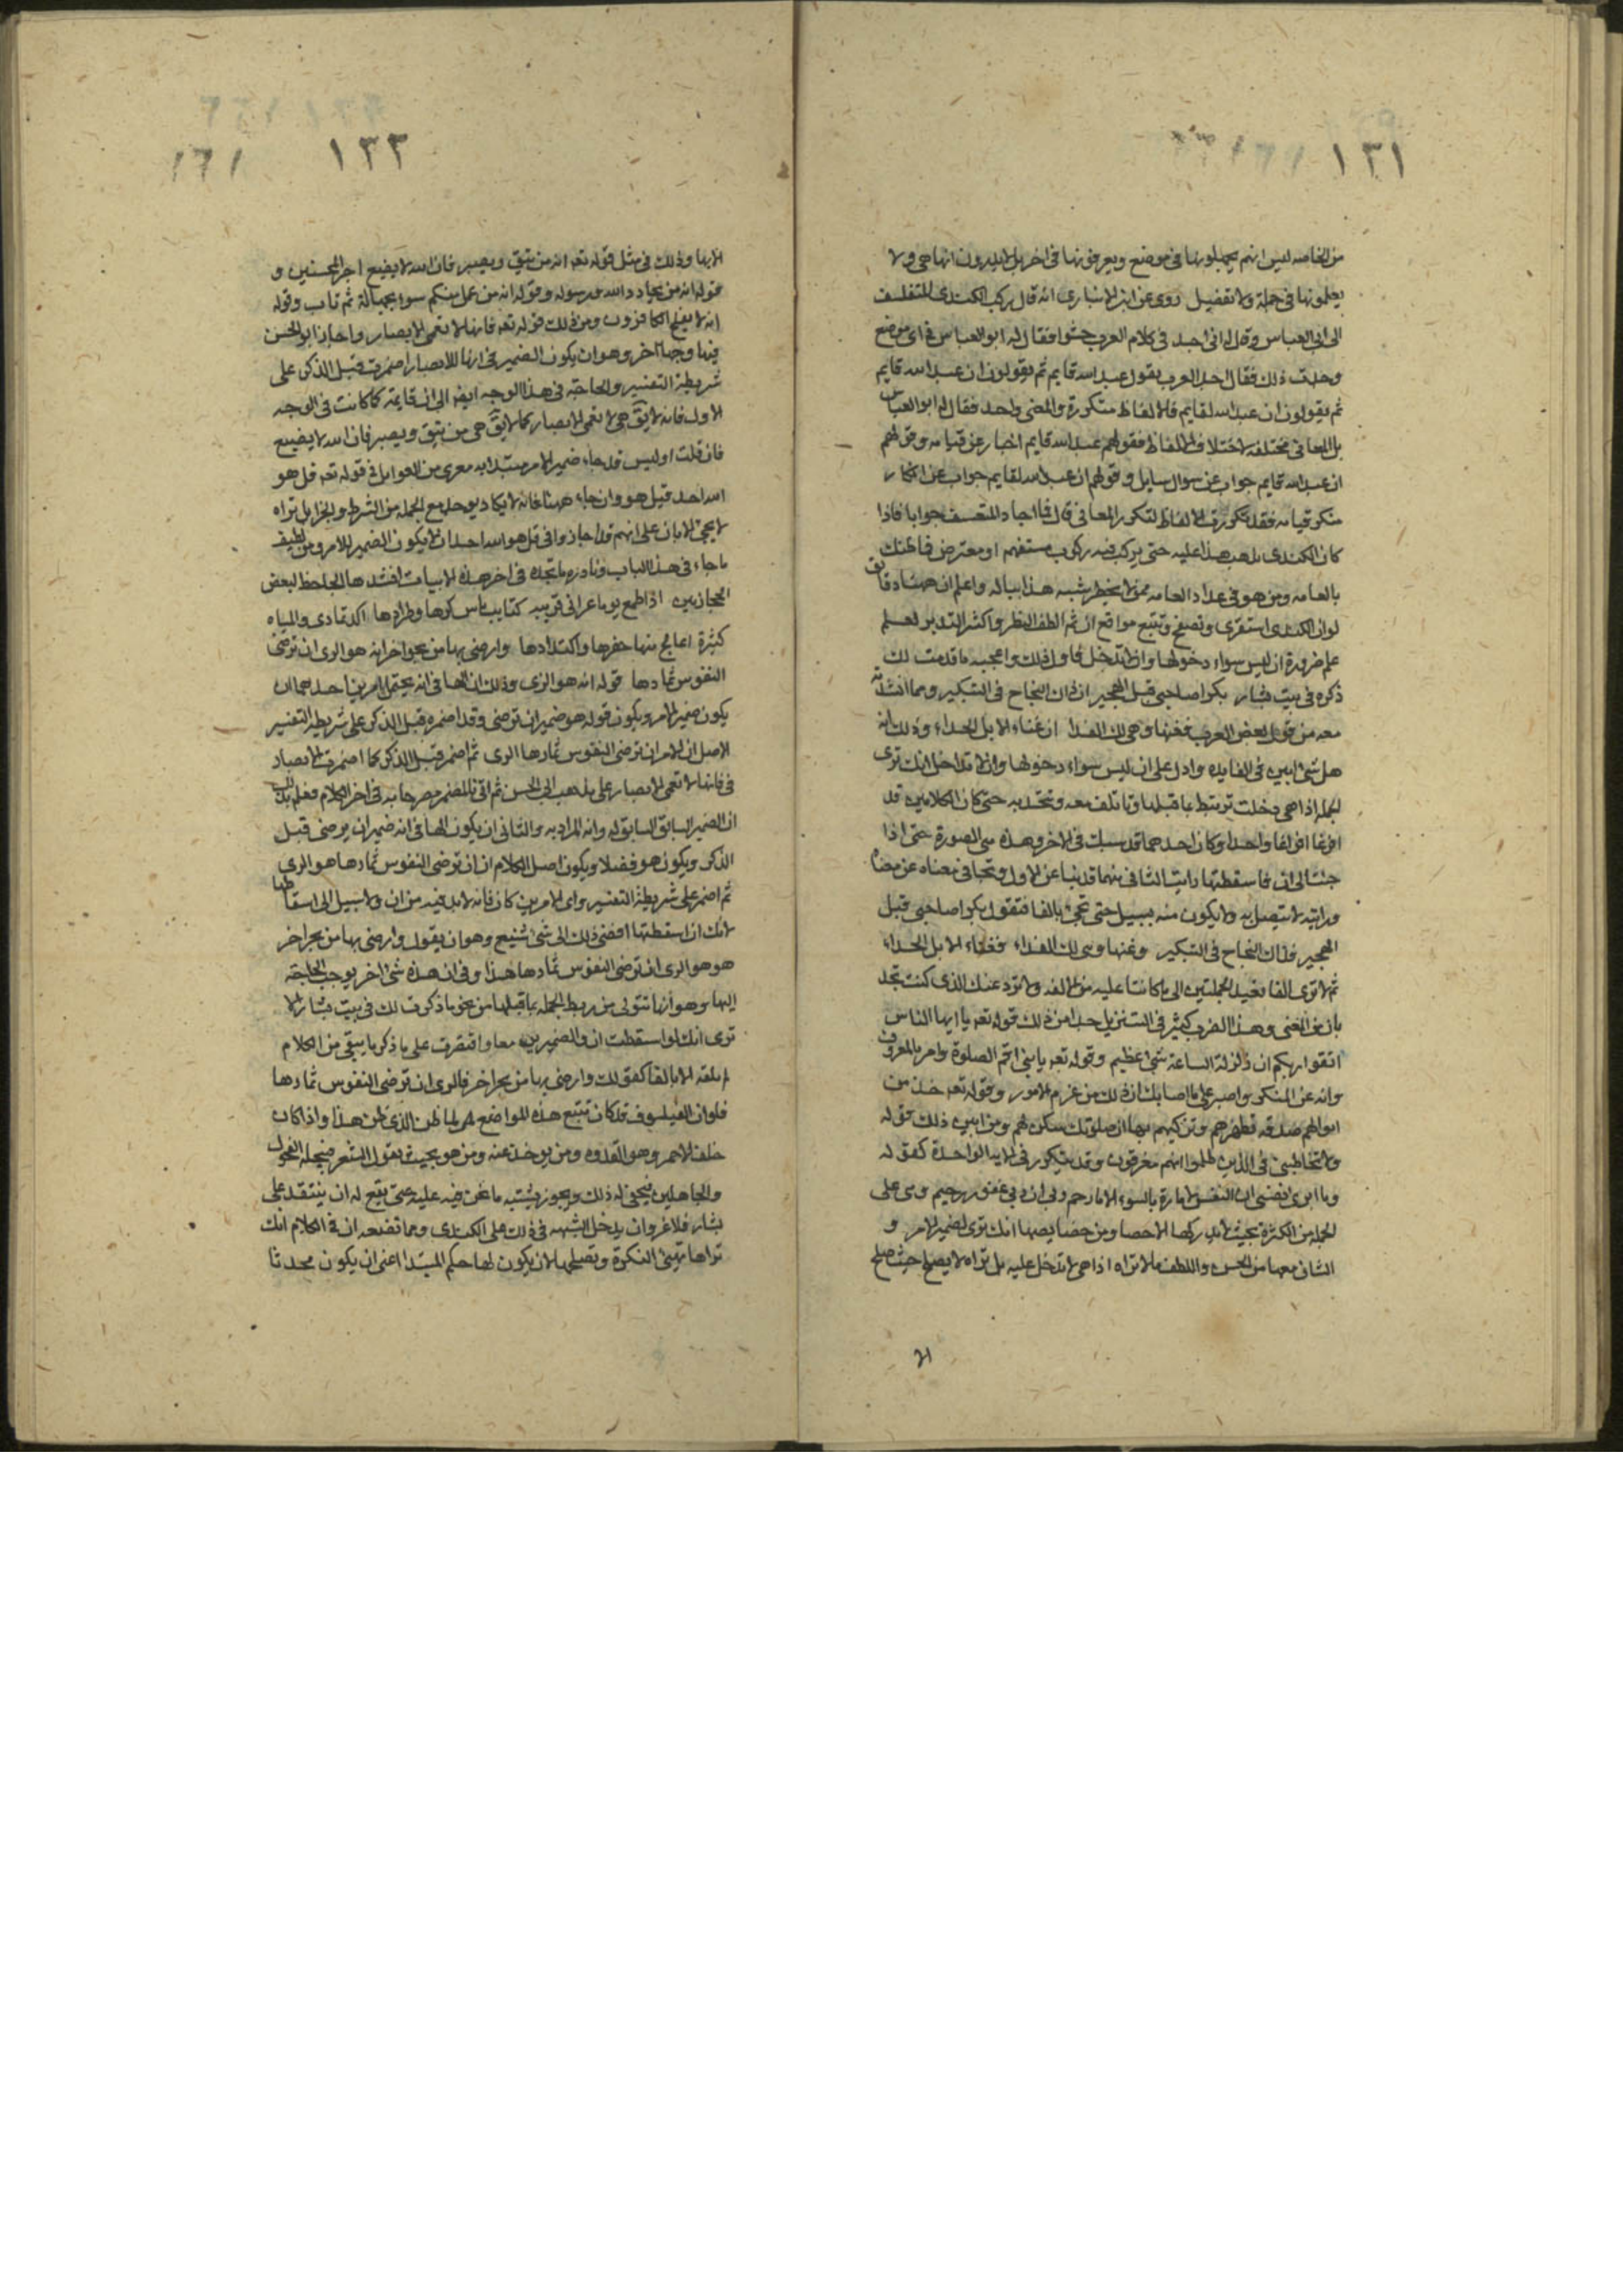 ١٣١
من الخاصه ليس انهم يجهلونها فى موضع ويعرفونها فى اخر بل لا يدرون انها هى ولا
يعلمونها فى جملة ولا تفصيل روى عن ابن الانبارى انه قال ركب الكندى المتفلسف
الى ابى العباس وقال له انى اجد فى كلام العرب حشوا فقال له ابو العباس فى اى موضع
وجدت ذلك فقال اجد العرب يقول عبد الله قايم ثم يقولون ان عبد الله قايم
ثم يقولون ان عبد الله لقايم فالالفاظ متكررة والمعنى واحد فقال له ابو العباس
بل المعانى مختلفه لاختلاف الالفاظ فقولهم عبد الله قايم اخبار عن قيامه وقولهم
ان عبد الله قايم جواب عن سوال سايل وقولهم ان عبد الله لقايم جواب عن انكار
منكر قيامه فقد تكررت الالفاظ لتكرر المعانى قال فما احار المتفلسف جوابا فاذا
كان الكندى يذهب هذا عليه حتى يركب فيه ركوب مستفهم او معترض فما ظنك
بالعامه ومن هو فى عداد العامه ممن لا يخطر شبه هذا بباله واعلم ان ههنا دقايق
لو ان الكندى استقرى وتصفح وتتبع مواقع ان ثم الطف النظر واكثر التدبر لعلم
علم ضرورة ان ليس سواء دخولها وان لا تدخل فاول ذلك واعجبه ما قدمت لك
ذكره فى بيت بشار بكرا صاحبى قبل الهجير ان ذاك النجاح فى التبكير وما انشدته
معه من قول بعض العرب فغنها وهى لك الفدا ان غناء الابل الحداء وذلك انه
هل شئ ابين فى الفايده وادل على ان ليس سواء دخولها وان لا تدخل انك ترى
الجملة اذا هى دخلت ترتبط بما قبلها وتاتلف معه وتتحد به حتى كان الكلامين قد
افرغا افراغا واحدا وكان احدهما قد سبك فى الاخر وهذه هى الصورة حتى اذا
جئت الى ان فاسقطتها رايت الثانى منهما قد نبا عن الاول وتجافى معناه عن معناه
ورايته لا يتصل به ولا يكون منه بسبيل حتى تجئ بالفا فتقول بكرا صاحبى قبل
الهجير فذاك النجاح فى التبكير وغنها وهى لك الفداء فغناء الابل الحداء
ثم لا ترى الفا تعيد الجملتين الى ما كانتا عليه من الالفه ولا ترد عليك الذى كنت تجد
بان من المعنى وهذا الضرب كثير فى التنزيل جدا من ذلك قوله تعه يا ايها الناس
اتقوا ربكم ان زلزلة الساعة شئ عظيم وقوله تعه يا بنى اقم الصلوة وامر بالمعروف
وانه عن المنكر واصبر على ما اصابك ان ذلك من عزم الامور وقوله تعه خذ من
اموالهم صدقه تطهرهم وتزكيهم بها ان صلوتك سكن لهم ومن ابين ذلك قوله
ولا تخاطبنى فى الذين ظلموا انهم مغرقون وقد يتكرر فى الايه الواحدة كقوله
وما ابرى نفسى ان النفس لامارة بالسوء الا ما رحم ربى ان ربى غفور رحيم وهى على
الجمله من الكثرة بحيث لا يدركها الاحصا ومن خصايصها انك ترى لضمير الامر و
الشان معها من الحسن واللطف ما لا تراه اذا هى لم تدخل عليه بل تراه لا يصلح حيث صلح
الا
١٣٣ ١٦١
الا بها وذلك فى مثل قوله تعه انه من يتق ويصبر فان الله لا يضيع اجر المحسنين و
قوله انه من يحادد الله ورسوله وقوله انه من عمل منكم سوء بجهالة ثم تاب وقوله
انه لا يفلح الكافرون ومن ذلك قوله تعه فانها لا تعمى الابصار واجاز ابو الحسن
فيها وجها اخر وهو ان يكون الضمير فى انها للابصار اضمرت قبل الذكر على
شريطة التفسير والحاجة فى هذا الوجه ايضا الى ان قايمة كما كانت فى الوجه
الاول فانه لا يق هى لا تعمى الابصار كما لا يق هى من يتق ويصبر فان الله لا يضيع
فان قلت او ليس قد جاء ضمير الامر مبتدا به معرى من العوامل فى قوله تعه قل هو
الله احد قيل هو وان جاء ههنا فانه لا يكاد يوجد مع الجمله من الشرط والجزا بل تراه
لا يجئ الا بان على انهم قد اجازوا فى قل هو الله احد ان لا يكون الضمير للامر ومن لطيف
ما جاء فى هذا الباب ونادره ما تجده فى اخر هذه الابيات انشدها الجاحظ لبعض
الحجازيين اذا طمع يوما عرانى قريته كتايب ياس كرها وطرادها اكد ثمادى والمياه
كثيرة اعالج منها حفرها واكتدادها وارضى بها من بحر اخر انه هو الرى ان ترضى
النفوس ثمادها قوله انه هو الرى وذلك ان الها فى انه يحتمل امرين احدهما ان
يكون ضمير الامر ويكون قوله هو ضمير ان ترضى وقد اضمره قبل الذكر على شريطة التفسير
الاصل ان الامر ان ترضى النفوس ثمادها الرى ثم اضمر قبل الذكر كما اضمرت الابصار
فى فانها لا تعمى الابصار على مذهب ابى الحسن ثم اتى بالمضمر مصرحا به فى اخر الكلام فعلم بذلك
ان الضمير السابق السابق له وانه المراد به والثانى ان يكون الها فى انه ضمير ان يرضى قبل
الذكر ويكون هو فصلا ويكون اصل الكلام ان ان ترضى النفوس ثمادها هو الرى
ثم اضمر على شريطة التفسير واى الامرين كان فانه لا بد فيه من ان ولا سبيل الى اسقاطها
لانك ان اسقطتها افضى ذلك الى شئ شنيع وهو ان يقول وارضى بها من بحر اخر
هو هو الرى ان ترضى النفوس ثمادها هذا وفى ان هذه شئ اخر يوجب الحاجة
اليها وهو انها تتولى من ربط الجمله بما قبلها من نحو ما ذكرت لك فى بيت بشار الا
ترى انك لو اسقطت ان والضميرين معا واقتصرت على ما ذكر ما يبقى من الكلام
لم يقله الا بالفا كقولك وارضى بها من بحر اخر فالرى ان ترضى النفوس ثمادها
فلو ان الفيلسوف قد كان تتبع هذه المواضع لما ظن الذى ظن هذا واذا كان
خلف الاحمر وهو القدوه ومن يوخذ عنه ومن هو بحيث يقول الشعر فينحله الفحول
والجاهليين فيخفى له ذلك ويجوز يشتبه ما نحن فيه عليه حتى يقع له ان ينتقد على
بشار فلا غرو ان يدخل الشبهه فى ذلك على الكندى ومما تصنعه ان فى الكلام انك
تراها تهيئ النكرة وتصلحها لان يكون لها حكم المبتدا اعنى ان يكون محدثا